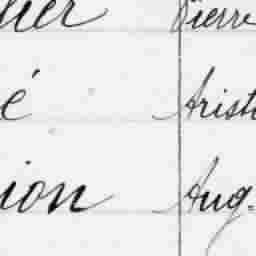 ier Pierre
é Arist
ion Aug.